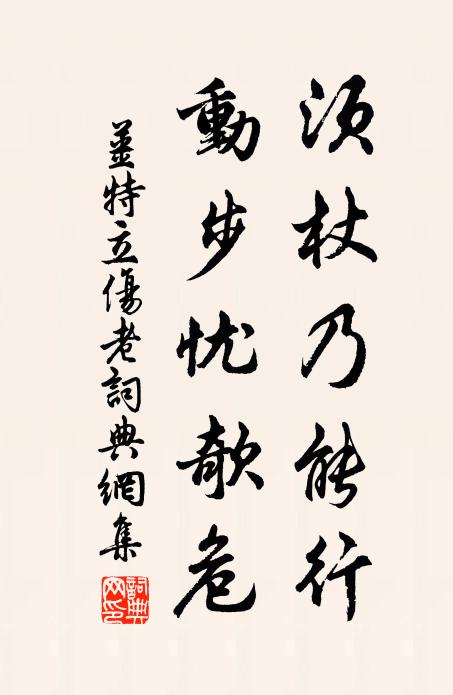 须杖乃能行
動步忧欹危
姜特立傷老詞典網集
詞典網印